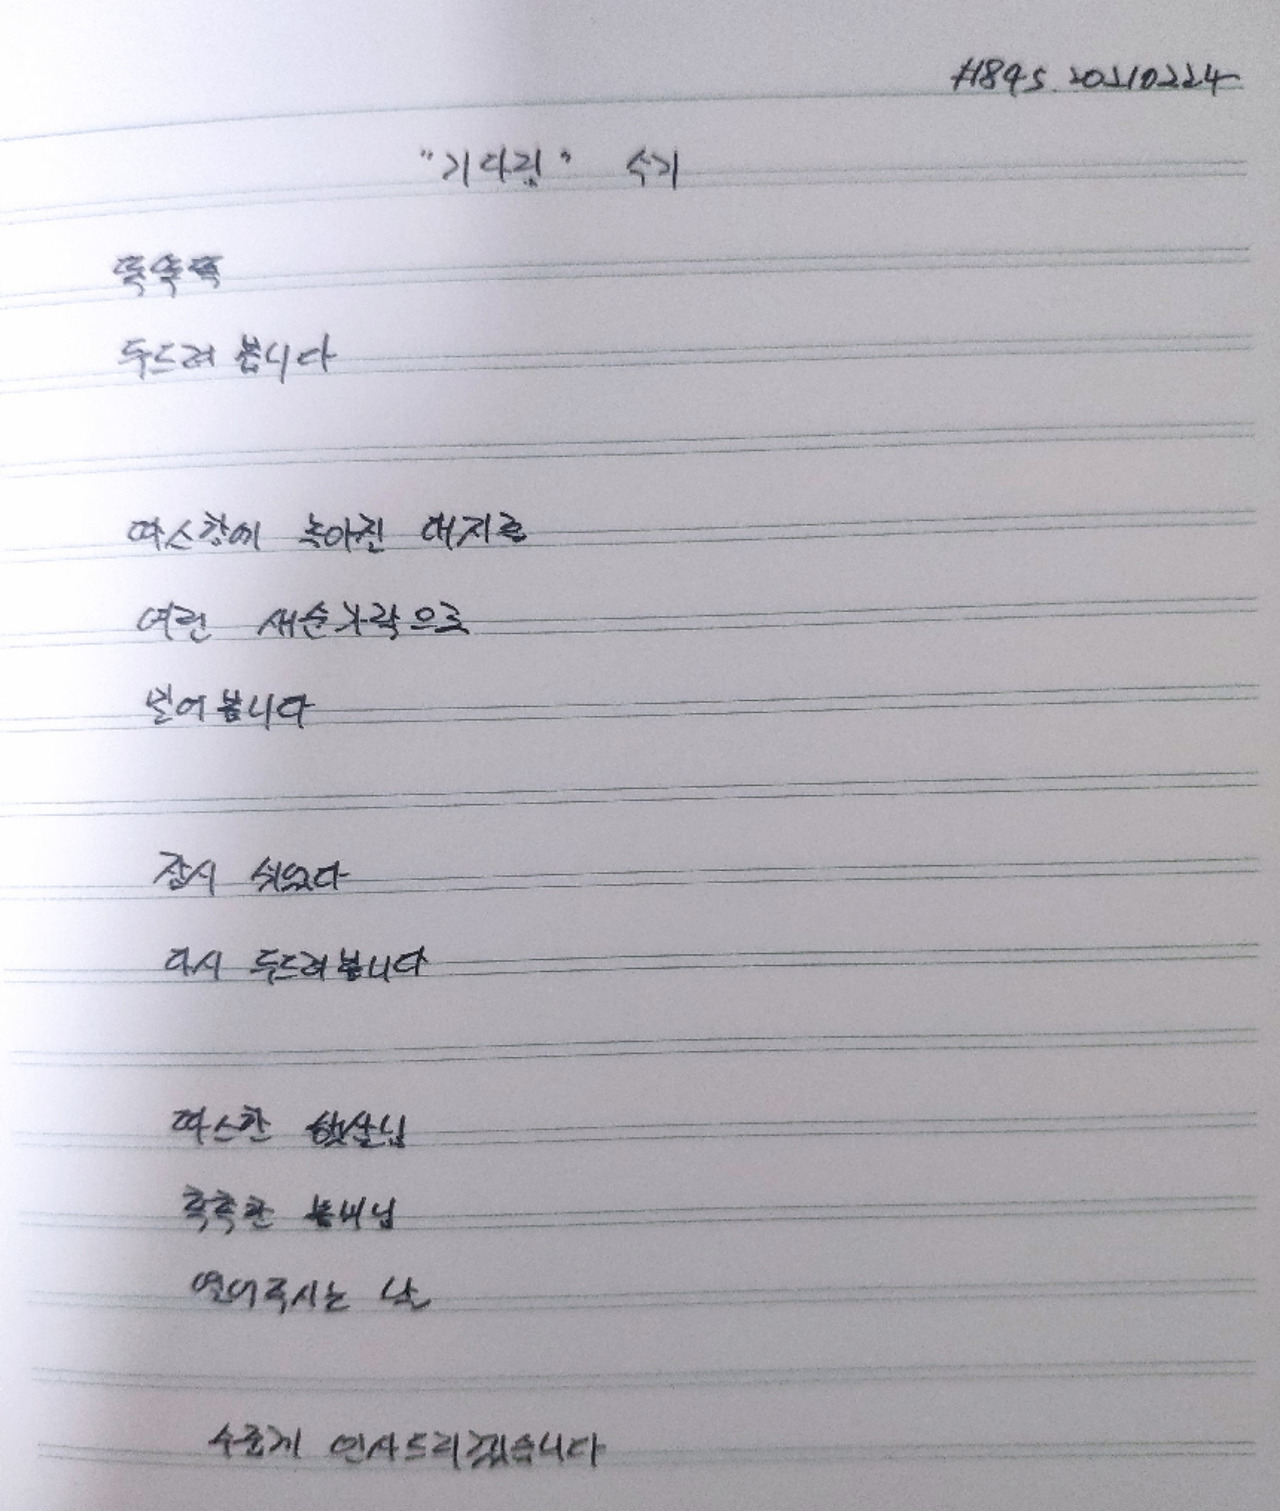 #895. 20210224
"기다림" 숙기
똑똑똑
두드려 봅니다
따스함에 녹아진 대지를
여린 새순가락으로
밀어봅니다
잠시 쉬었다
다시 두드려봅니다
따스한 햇살님
촉촉한 봄비님
열어주시는 날
수줍게 인사드리겠습니다